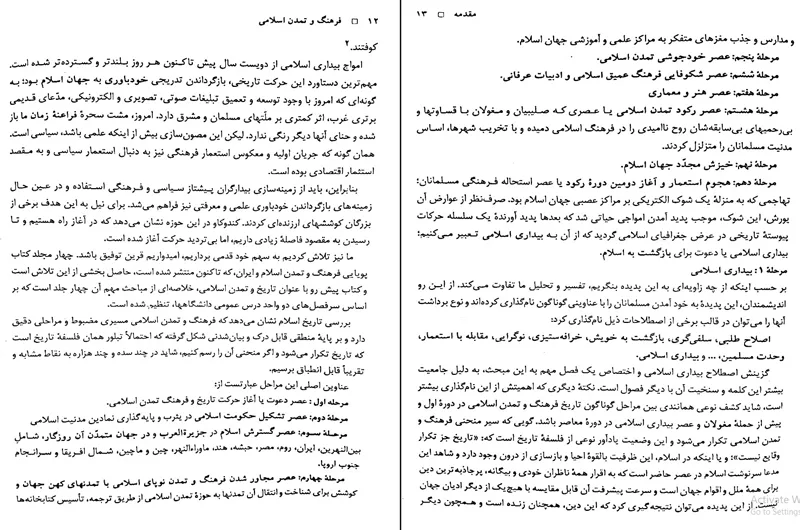 ۱۲ □ فرهنگ و تمدن اسلامی
کوفتند.۲
امواج بیداری اسلامی از دویست سال پیش تاکنون هر روز بلندتر و گسترده‌تر شده است.
مهم‌ترین دستاورد این حرکت تاریخی، بازگرداندن تدریجی خودباوری به جهان اسلام بود؛ به
گونه‌ای که امروز با وجود توسعه و تعمیق تبلیغات صوتی، تصویری و الکترونیکی، مدّعای قدیمی
برتری غرب، اثر کمتری بر ملّتهای مسلمان و مشرق دارد. امروز، مشت سحرهٔ فراعنهٔ زمان ما باز
شده و حنای آنها دیگر رنگی ندارد. لیکن این مصون‌سازی بیش از اینکه علمی باشد، سیاسی است.
همان گونه که جریان اولیه و معکوس استعمار فرهنگی نیز به دنبال استعمار سیاسی و به مقصد
استثمار اقتصادی بوده است.
بنابراین، باید از زمینه‌سازی بیدارگران پیشتاز سیاسی و فرهنگی استفاده و در عین حال
زمینه‌های بازگرداندن خودباوری علمی و معرفتی نیز فراهم می‌شد. برای نیل به این هدف برخی از
بزرگان کوششهای ارزنده‌ای کردند. کندوکاو در این حوزه نشان می‌دهد که در آغاز راه هستیم و تا
رسیدن به مقصود فاصلهٔ زیادی داریم، اما بی‌تردید حرکت آغاز شده است.
ما نیز تلاش کردیم به سهم خود قدمی برداریم، امیدواریم قرین توفیق باشد. چهار مجلد کتاب
پویایی فرهنگ و تمدن اسلام و ایران، که تاکنون منتشر شده است، حاصل بخشی از این تلاش است
و کتاب پیش رو با عنوان تاریخ و تمدن اسلامی، خلاصه‌ای از مباحث مهم آن چهار جلد است که بر
اساس سرفصل‌های دو واحد درس عمومی دانشگاهها، تنظیم شده است.
بررسی تاریخ اسلام نشان می‌دهد که فرهنگ و تمدن اسلامی مسیری مضبوط و مراحلی دقیق
دارد و بر پایهٔ منطقی قابل درک و بیان‌شدنی شکل گرفته که احتمالاً تبلور همان فلسفهٔ تاریخ است
که تاریخ تکرار می‌شود و اگر منحنی آن را رسم کنیم، شاید در چند سده و چند هزاره به نقاط مشابه و
تقریباً قابل انطباق برسیم.
عناوین اصلی این مراحل عبارتست از:
مرحله اول: عصر دعوت یا آغاز حرکت تاریخ و فرهنگ تمدن اسلامی.
مرحلهٔ دوم: عصر تشکیل حکومت اسلامی در یثرب و پایه‌گذاری نمادین مدنیت اسلامی
مرحلهٔ سوم: عصر گسترش اسلام در جزیرةالعرب و در جهان متمدّن آن روزگار، شامل
بین‌النهرین، ایران، روم، مصر، حبشه، هند، ماوراءالنهر، چین و ماچین، شمال افریقا و سرانجام
جنوب اروپا.
مرحلهٔ چهارم: عصر مجاور شدن فرهنگ و تمدن نوپای اسلامی با تمدنهای کهن جهان و
کوشش برای شناخت و انتقال آن تمدنها به حوزهٔ تمدن اسلامی از طریق ترجمه، تأسیس کتابخانه‌ها
مقدمه □ ۱۳
و مدارس و جذب مغزهای متفکر به مراکز علمی و آموزشی جهان اسلام.
مرحلهٔ پنجم: عصر خودجوشی تمدن اسلامی.
مرحلهٔ ششم: عصر شکوفایی فرهنگ عمیق اسلامی و ادبیات عرفانی.
مرحلهٔ هفتم: عصر هنر و معماری
مرحلهٔ هشتم: عصر رکود تمدن اسلامی یا عصری که صلیبیان و مغولان با قساوتها و
بی‌رحمیهای بی‌سابقه‌شان روح ناامیدی را در فرهنگ اسلامی دمیده و با تخریب شهرها، اساس
مدنیت مسلمانان را متزلزل کردند.
مرحلهٔ نهم: خیزش مجدّد جهان اسلام.
مرحلهٔ دهم: هجوم استعمار و آغاز دومین دورهٔ رکود یا عصر استحاله فرهنگی مسلمانان؛
تهاجمی که به منزلهٔ یک شوک الکتریکی بر مراکز عصبی جهان اسلام بود. صرف‌نظر از عوارض آن
یورش، این شوک، موجب پدید آمدن امواجی حیاتی شد که بعدها پدید آورندهٔ یک سلسله حرکات
پیوستهٔ تاریخی در عرض جغرافیای اسلامی گردید که از آن به بیداری اسلامی تعبیر می‌کنیم؛
بیداری اسلامی یا دعوت برای بازگشت به اسلام.
مرحلهٔ ۱: بیداری اسلامی
بر حسب اینکه از چه زاویه‌ای به این پدیده بنگریم، تفسیر و تحلیل ما تفاوت می‌کند. از این رو
اندیشمندان، این پدیده به خود آمدن مسلمانان را با عناوینی گوناگون نام‌گذاری کرده‌اند و نوع برداشت
آنها را می‌توان در قالب برخی از اصطلاحات ذیل نام‌گذاری کرد:
اصلاح طلبی، سلفی‌گری، بازگشت به خویش، خرافه‌ستیزی، نوگرایی، مقابله با استعمار،
وحدت مسلمین، ... و بیداری اسلامی.
گزینش اصطلاح بیداری اسلامی و اختصاص یک فصل مهم به این مبحث، به دلیل جامعیت
بیشتر این کلمه و سنخیت آن با دیگر فصول است. نکتهٔ دیگری که اهمیتش از این نام‌گذاری بیشتر
است، شاید کشف نوعی همانندی بین مراحل گوناگون تاریخ فرهنگ و تمدن اسلامی در دورهٔ اول و
پیش از حملهٔ مغولان و عصر بیداری اسلامی در دورهٔ معاصر باشد. گویی که سیر منحنی فرهنگ و
تمدن اسلامی تکرار می‌شود و این وضعیت یادآور نوعی از فلسفهٔ تاریخ است که: «تاریخ جز تکرار
وقایع نیست»؛ و یا اینکه در اسلام، این ظرفیت بالقوهٔ احیا و بازسازی از درون وجود دارد و شاهد این
مدعا سرنوشت اسلام در عصر حاضر است که به اقرار همهٔ ناظران خودی و بیگانه، پرجاذبه‌ترین دین
برای همهٔ ملل و اقوام جهان است و سرعت پیشرفت آن قابل مقایسه با هیچ‌یک از دیگر ادیان جهان
نیست. از این پدیده می‌توان نتیجه‌گیری کرد که این دین، همچنان زنده است و همچون دیگر
Activate W
Go to Settings